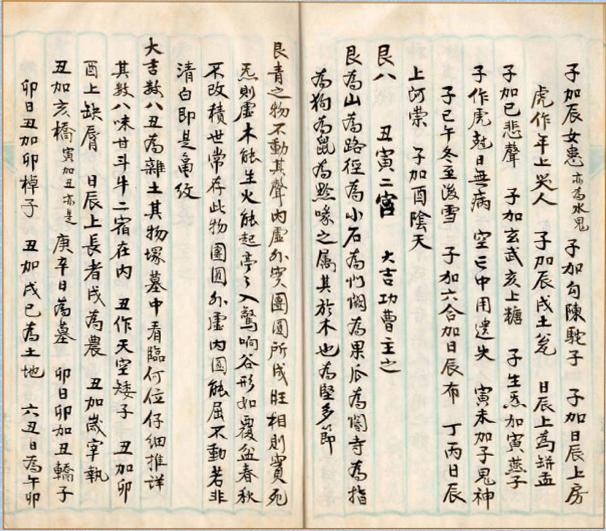 子加辰女患亦為水鬼 子加勾陳駝子 子加日辰上房
虎作年上哭人 子加辰戌土瓮 日辰上為缾盂
子加巳悲聲 子加玄武亥上糖 子生炁加寅燕子
子作虎尅日無病 空亡中用遺失 寅未加子鬼神
子巳午冬至後雪 子加六合加日辰布 丁丙日辰
上河崇 子加酉陰天
艮八 丑寅二宮 大吉功曹主之
艮為山為路徑為小石為門闕為果瓜為閽寺為指
為狗為鼠為黔喙之属其於木也為堅多節
艮青之物不動其聲内虛外實團圓所成旺相則實死
炁則虛木能生火能起亭亭入驚响谷形如覆盆春秋
不改積世常存此物團圓外虛内圓能屈不動若非
清白即是龜紋
大吉数八丑為雜土其物塚墓中看臨何位仔細推詳
其数八味甘斗牛二宿在内 丑作天空矮子 丑加卯
酉上缺唇 日辰上長者戌為農 丑加歲宰執
丑加亥橋寅加丑亦是 庚辛日為墓 卯日卯加丑轎子
卯日丑加卯棹子 丑加戌巳為土地 六丑日為午卯